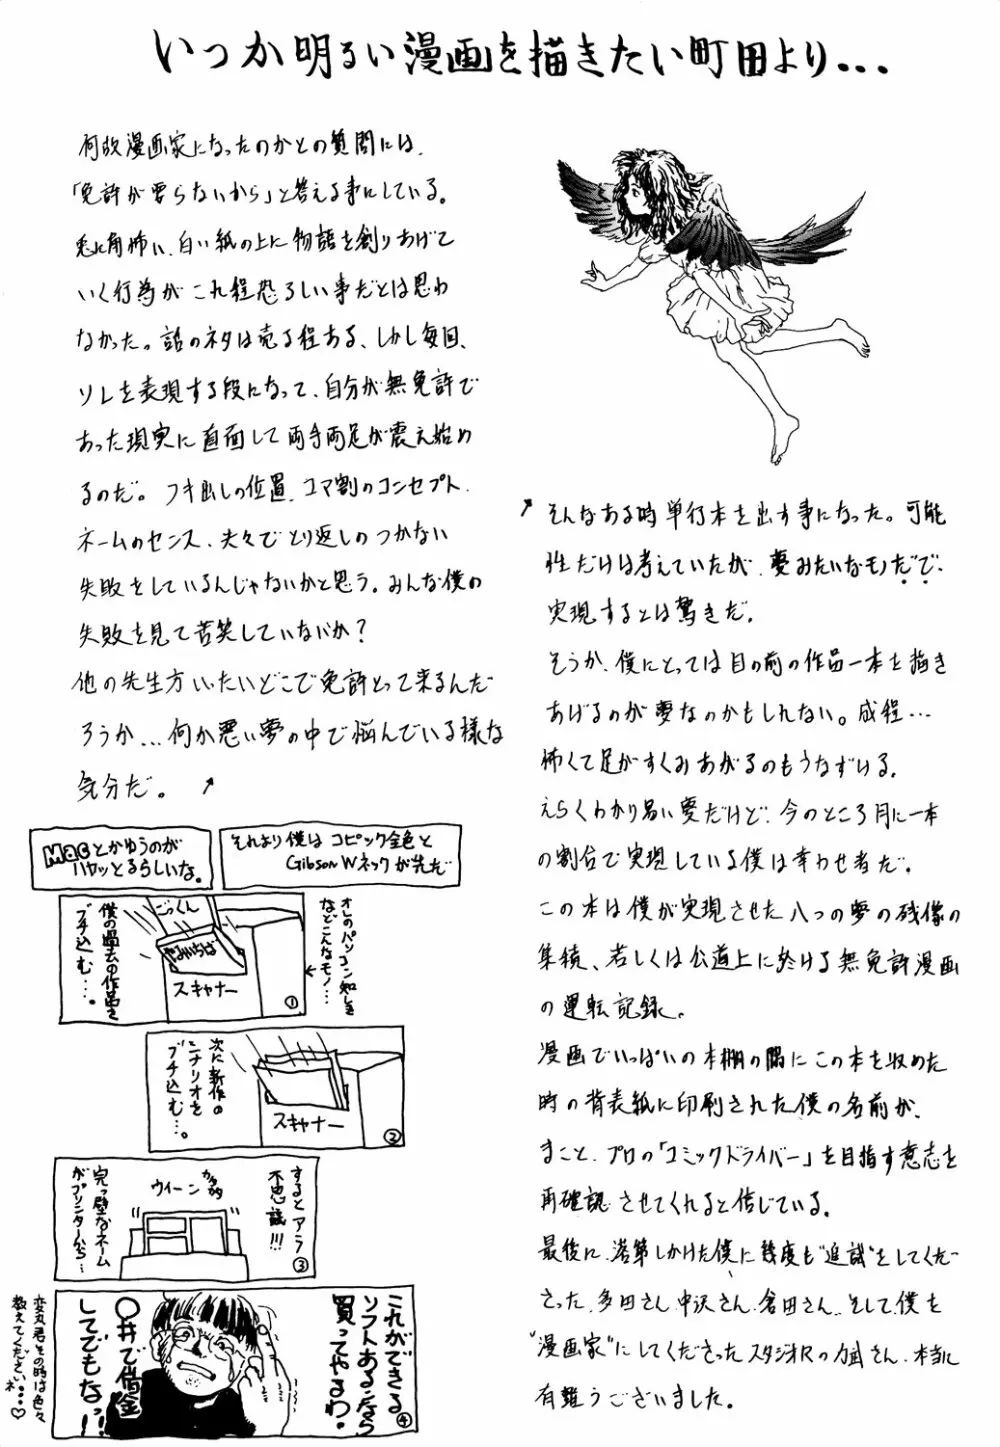 いつか明るい漫画を描きたい町田より...
何故漫画家になったのかとの質問には、
「免許が要らないから」と答える事にしている。
兎に角怖い、白い紙の上に物語を創りあげて
いく行為がこれ程恐ろしい事だとは思わ
なかった。話のネタは売る程ある、しかし毎回、
ソレを表現する段になって、自分が無免許で
あった現実に直面して両手両足が震え始め
るのだ。フキ出しの位置、コマ割のコンセプト、
ネームのセンス、夫々でとり返しのつかない
失敗をしているんじゃないかと思う。みんな僕の
失敗を見て苦笑していないか?
他の先生方いったいどこで免許とって来るんだ
ろうか...何か悪い夢の中で悩んでいる様な
気分だ。
そんなある時単行本を出す事になった。可能
性だけは考えていたが、夢みたいなモノだで、
実現するとは驚きだ。
そうか、僕にとっては目の前の作品一本を描き
あげるのが夢なのかもしれない。成程...
怖くて足がすくみあがるのもうなずける。
えらくわかり易い夢だけど、今のところ月に一本
の割合で実現している僕は幸わせ者だ。
この本は僕が実現させた八つの夢の残像の
集積、若しくは公道上に於ける無免許漫画
の運転記録。
漫画でいっぱいの本棚の隅にこの本を収めた
時の背表紙に印刷された僕の名前が、
まこと、プロの「コミックドライバー」を目指す意志を
再確認させてくれると信じている。
最後に、落第しかけた僕に幾度も"追試"をしてくだ
さった、多田さん、中沢さん、倉田さん、そして、僕を
"漫画家"にしてくださったスタジオRの力武さん、本当に
有難うございました。
Macとかゆうのが
ハヤッとるらしいな。
それより僕はコピック全色と
Gibson Wネックが先だ
オレのパソコン知しき
などこんなモノ...
ごっくん
やみいちば
スキャナー
僕の過去の作品を
ブチ込む...。
①
次に新作の
シナリオを
ブチ込む...。
スキャナー
②
するとアラ
不思議!!!
ウィーン
カタカタ
完っ璧なネーム
がプリンターから...
③
これができる
ソフトあるなら
買ってやるわ。
〇井で借金
してでもなっ!!
④
変丸君その時は色々
教えてくださいネ...♡